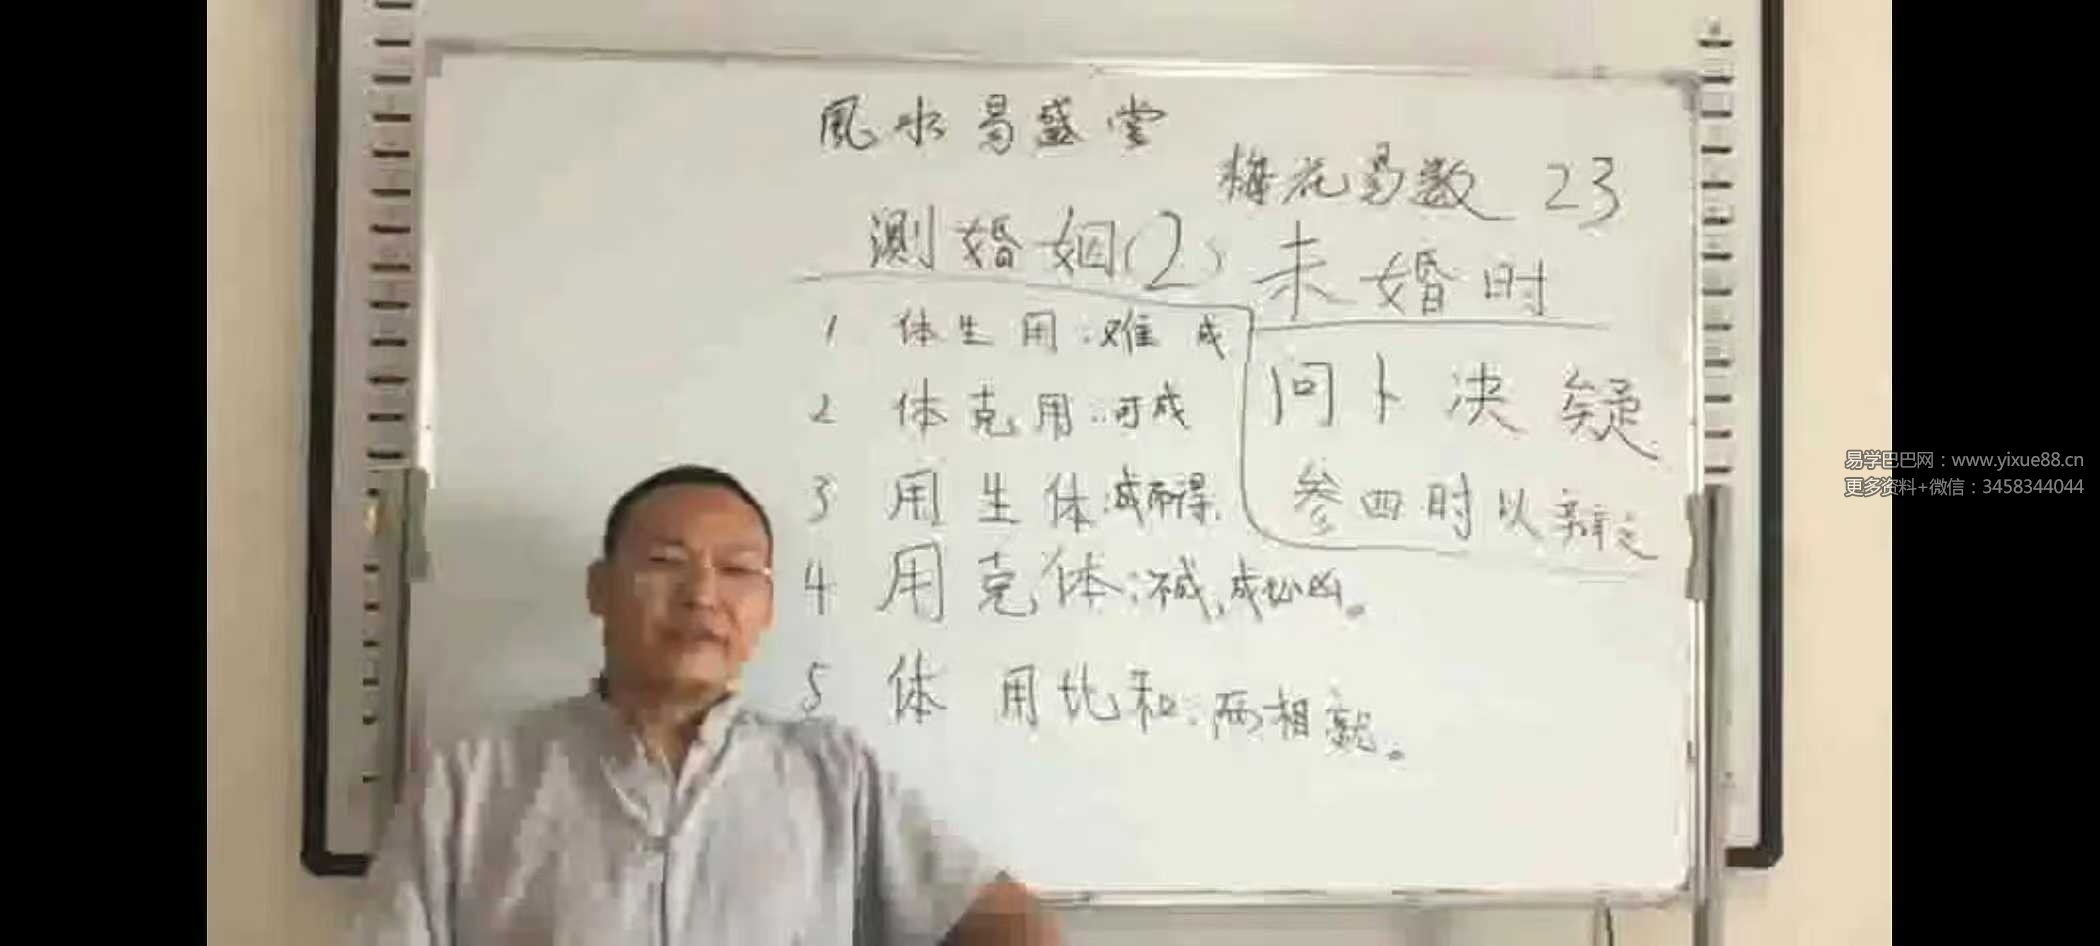 風水易盛堂
梅花易数 23
测婚姻(2) 未婚时
1 体生用:难成
2 体克用:可成
3 用生体:成而得.
4 用克体:不成,成必凶。
5 体用比和:两相就。
问卜决疑
参四时以辩之
易学巴巴网:www.yixue88.cn
更多资料+微信:3458344044